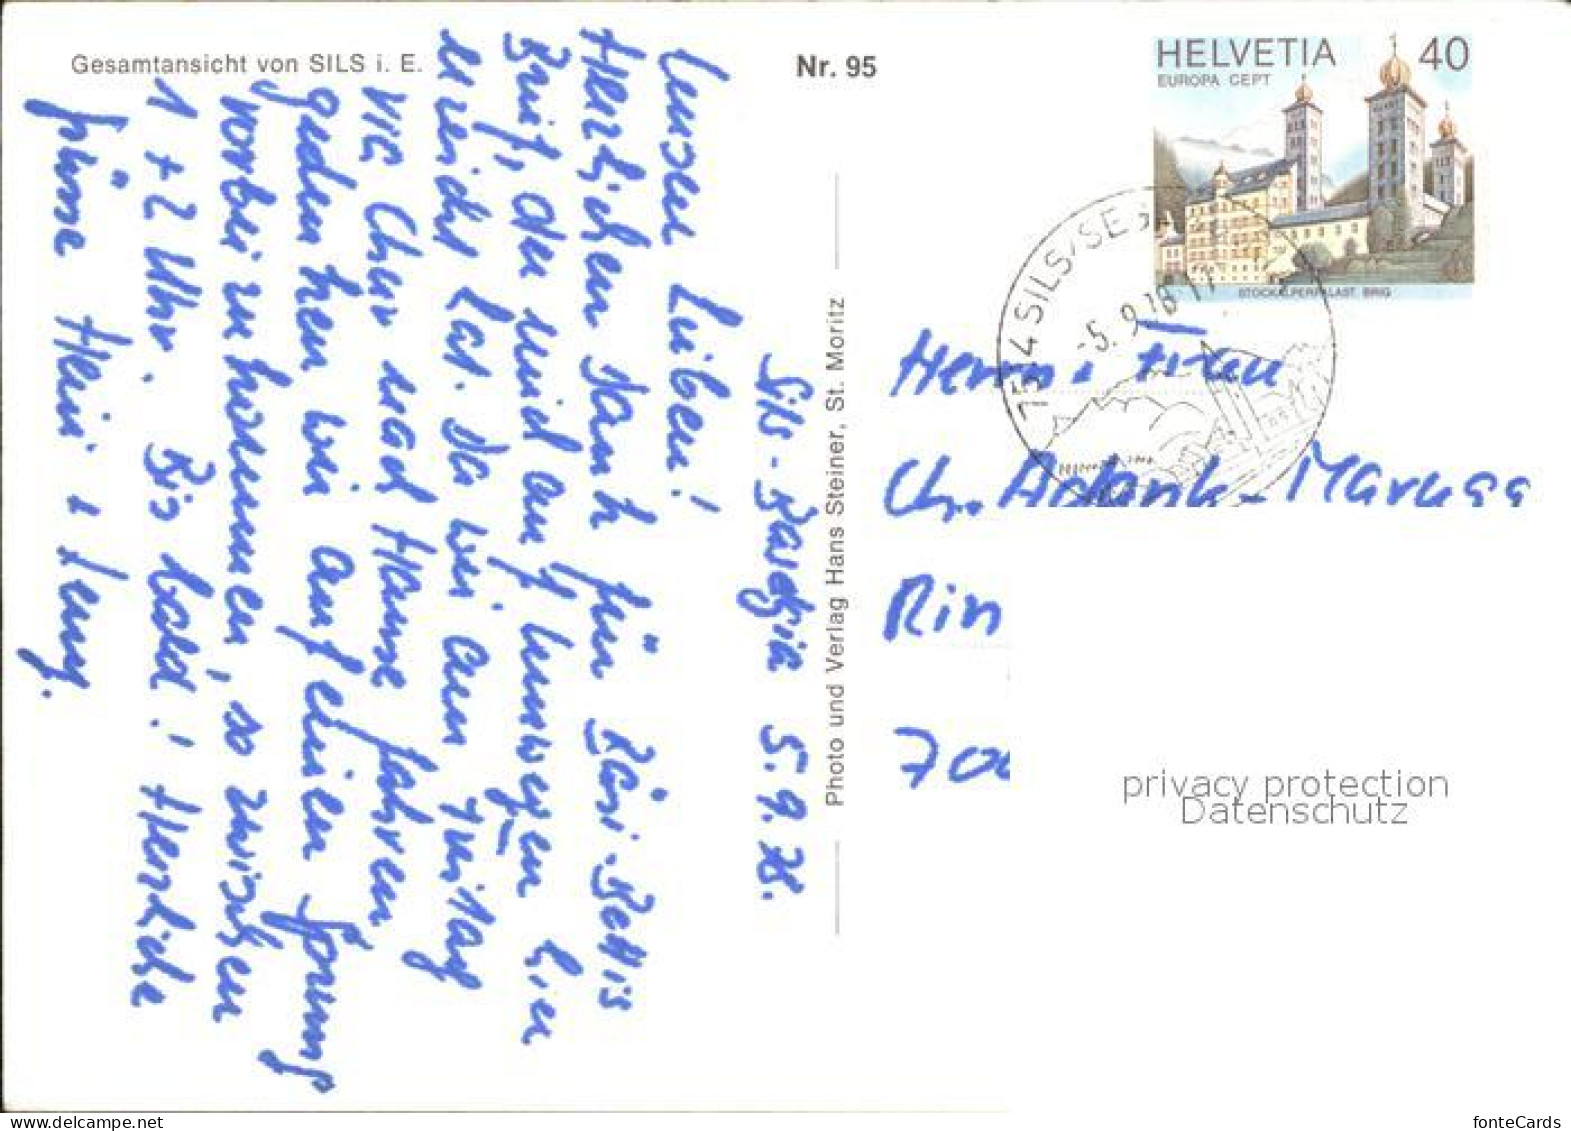 Gesamtansicht von SILS i. E.
Nr. 95
HELVETIA 40
EUROPA CEPT
STOCKALPERPALAST, BRIG
7514 SILS/SE
-5.9.78-17
Photo und Verlag Hans Steiner, St. Moritz
Sils-Baselgia 5.9.78.
Lieben!
Herzlichen Dank für Bäsi-Bettis
Brief, der mich auf Umwegen hier
erreicht hat. Da wir am Freitag
via Chur nach Hause fahren,
gedenken wir auf einen Sprung
vorbei zu kommen, so zwischen
1 + 2 Uhr. Bis bald! Herzliche
Grüsse Heiri +
Herrn + Frau
Ch. Adank-Marugg
Rin
700
privacy protection
Datenschutz
fonteCards